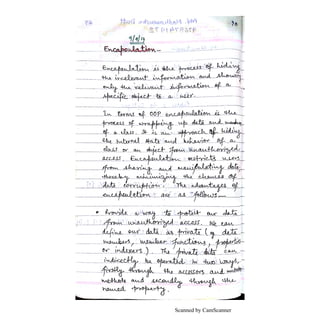 9/8/19
Encapsulation -
Encapsulation is the process of hiding
the irrelevant information and showing
only the relevant information of a
specific object to a user.
In terms of OOP encapsulation is the
process of wrapping up data and
of a class. It is an approach of hiding
the internal state and behavior of a
class or an object from unauthorized
access. Encapsulation restricts users
from sharing and manipulating data,
thereby minimizing the chances of
data corruption. The advantages of
encapsulation are as follows -
• Provide a way to protect our data
from unauthorized access. We can
define our data as private (eg. data
members, member functions, properties
or indexers). The private data can
indirectly be operated in two ways,
firstly through the accessors and
methods and secondly through the
named property.
Scanned by CamScanner